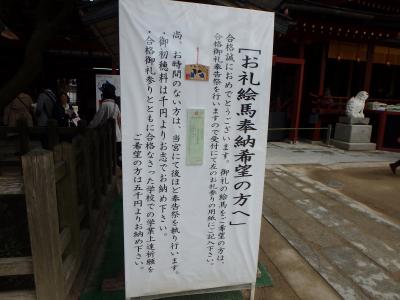 「お礼絵馬奉納希望の方へ」
合格誠におめでとうございます。御礼の絵馬をご希望の方は、
合格御礼奉告祭を行いますので受付にて左のお礼参りの用紙にご記入下さい。
尚 お時間のない方は、当宮にて後ほど奉告祭を執り行います。
・御初穂料は千円よりお志でお納め下さい。
・合格御礼参りとともに合格なさった学校での学業上達祈願を
ご希望の方は五千円よりお納め下さい。